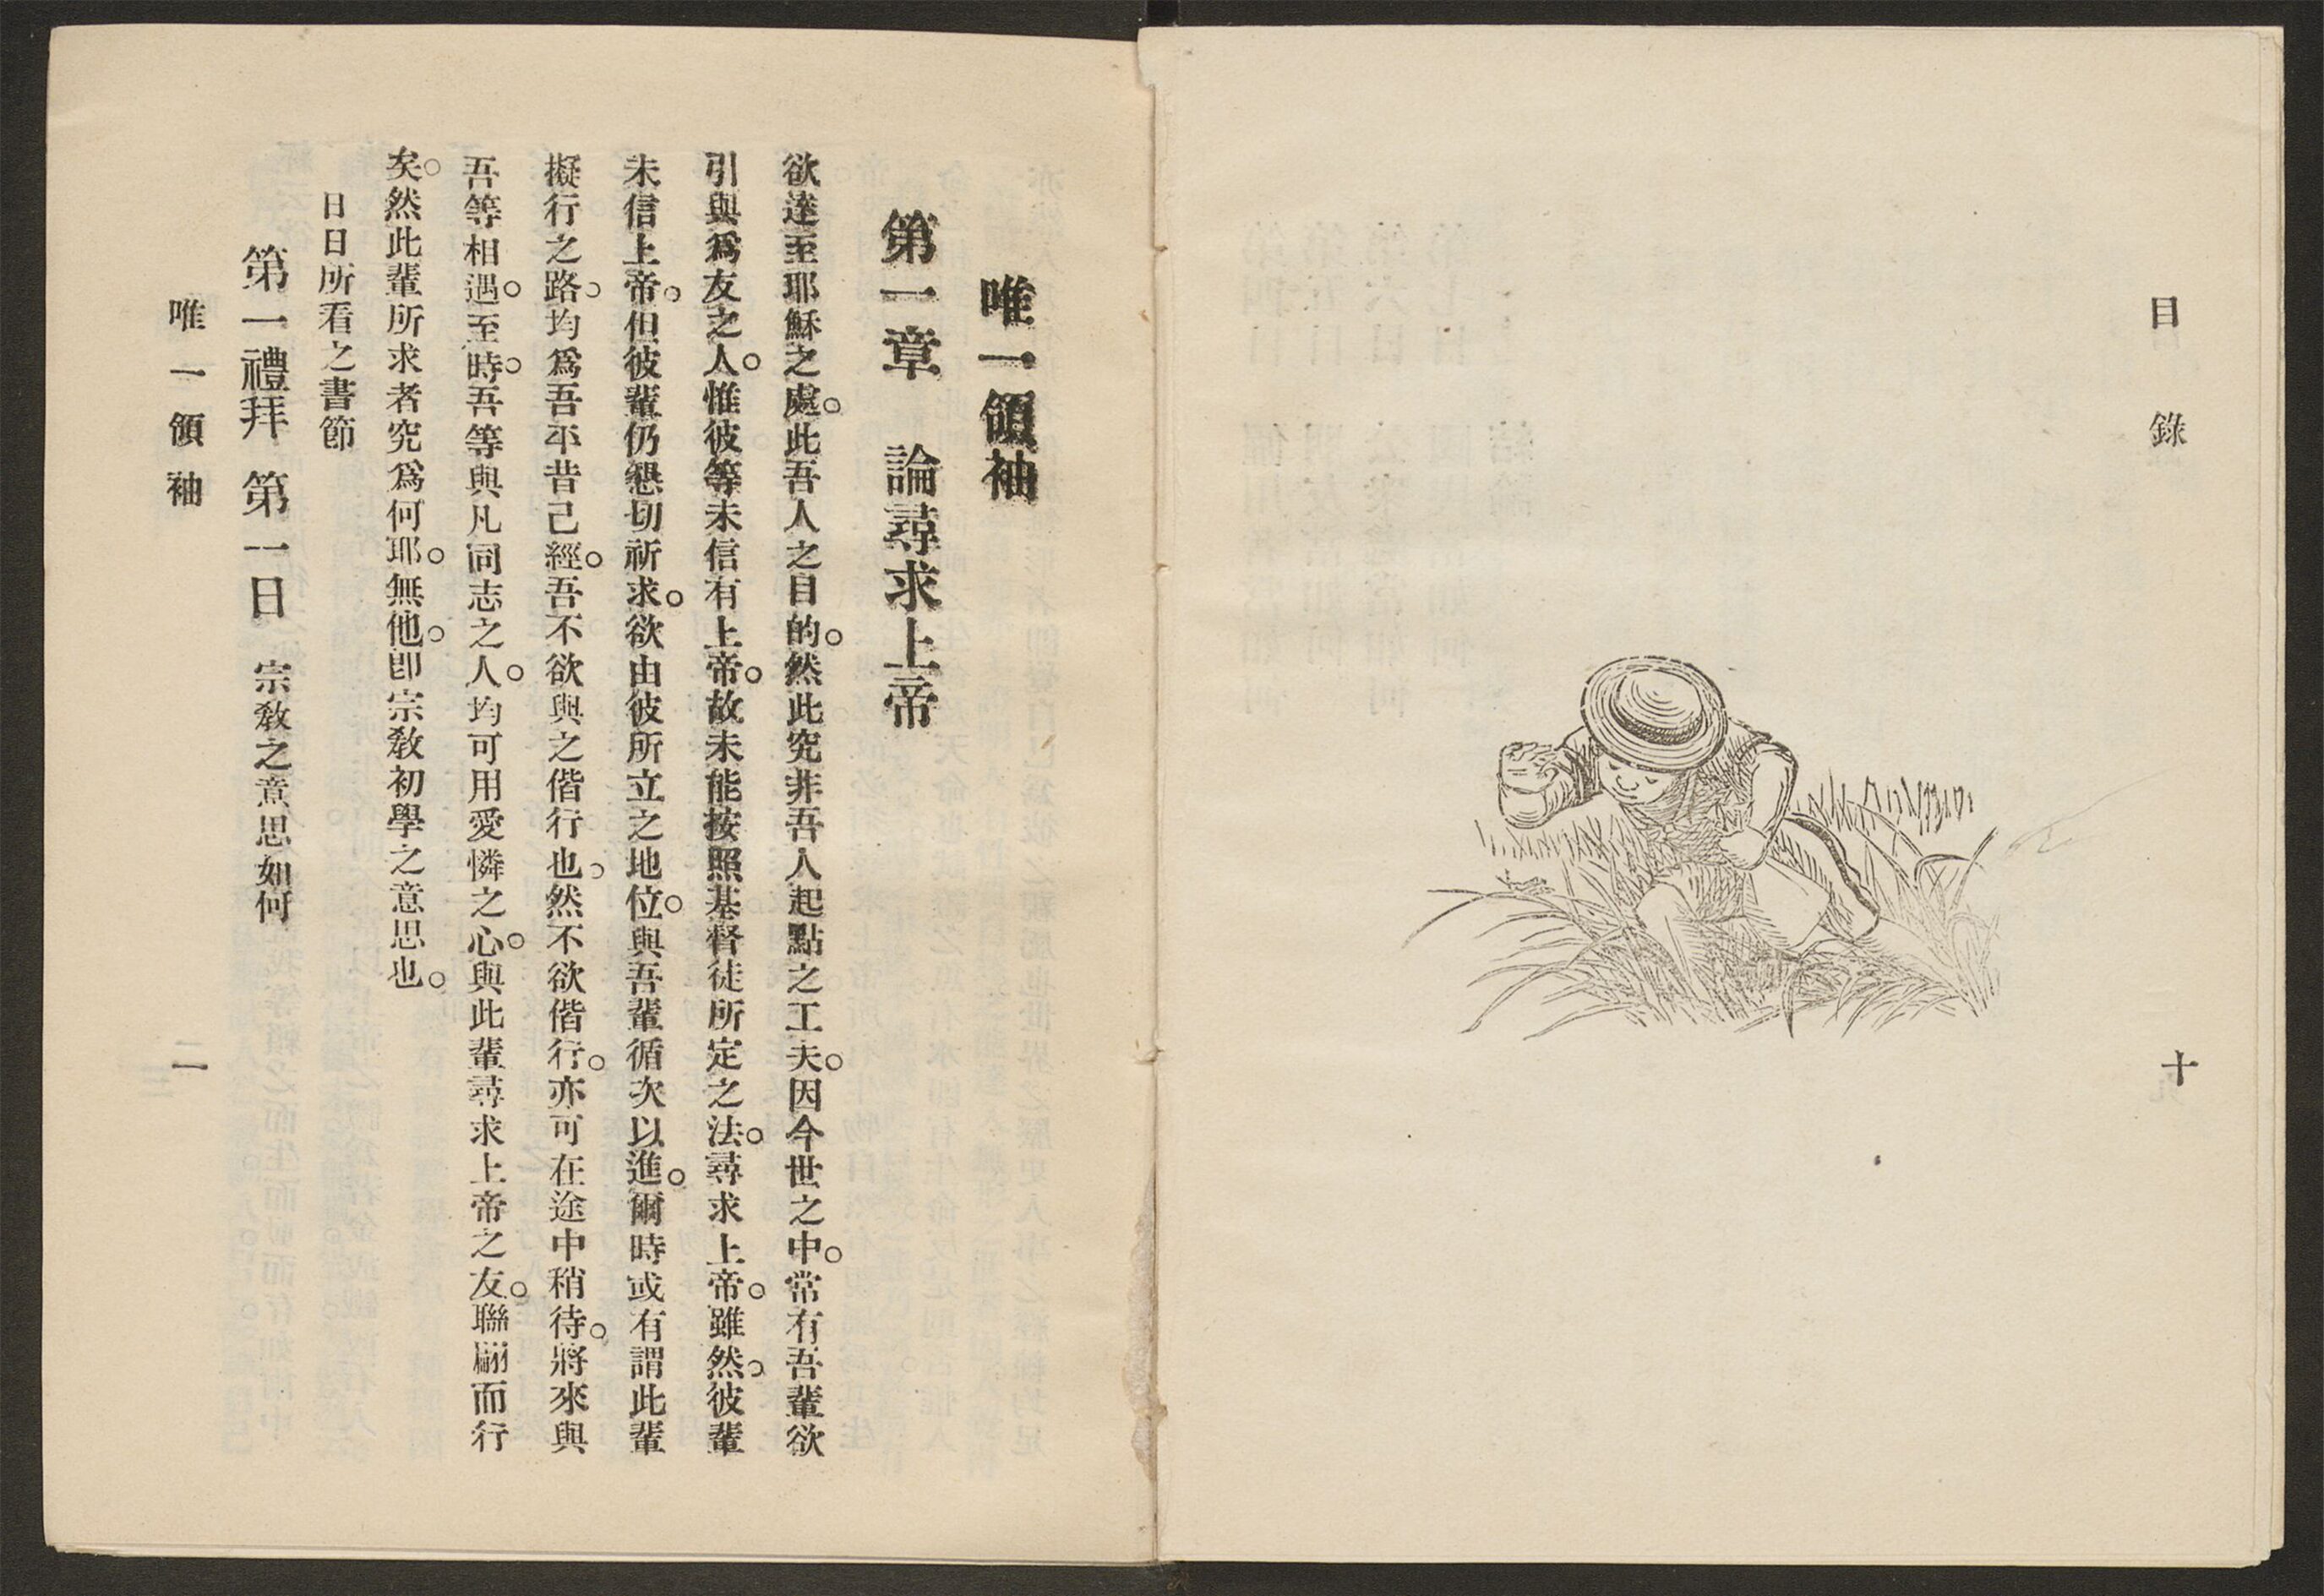 目錄
十
唯一領袖
第一章 論尋求上帝
欲達至耶穌之處。此吾人之目的。然此究非吾人起點之工夫。因今世之中。常有吾輩欲
引與爲友之人。惟彼等未信有上帝。故未能按照基督徒所定之法。尋求上帝。雖然。彼輩
未信上帝。但彼輩仍懇切祈求。欲由彼所立之地位。與吾輩循次以進。爾時或有謂此輩
擬行之路。均爲吾儕昔己經。吾不欲與之偕行也。然不欲偕行。亦可在途中稍待。將來與
吾等相遇。至時。吾等與凡同志之人。均可用愛憐之心。與此輩尋求上帝之友。聯翩而行
矣。然此輩所求者究爲何耶。無他。卽宗敎初學之意思也。
日日所看之書節
第一禮拜 第一日 宗敎之意思如何
唯一領袖
一